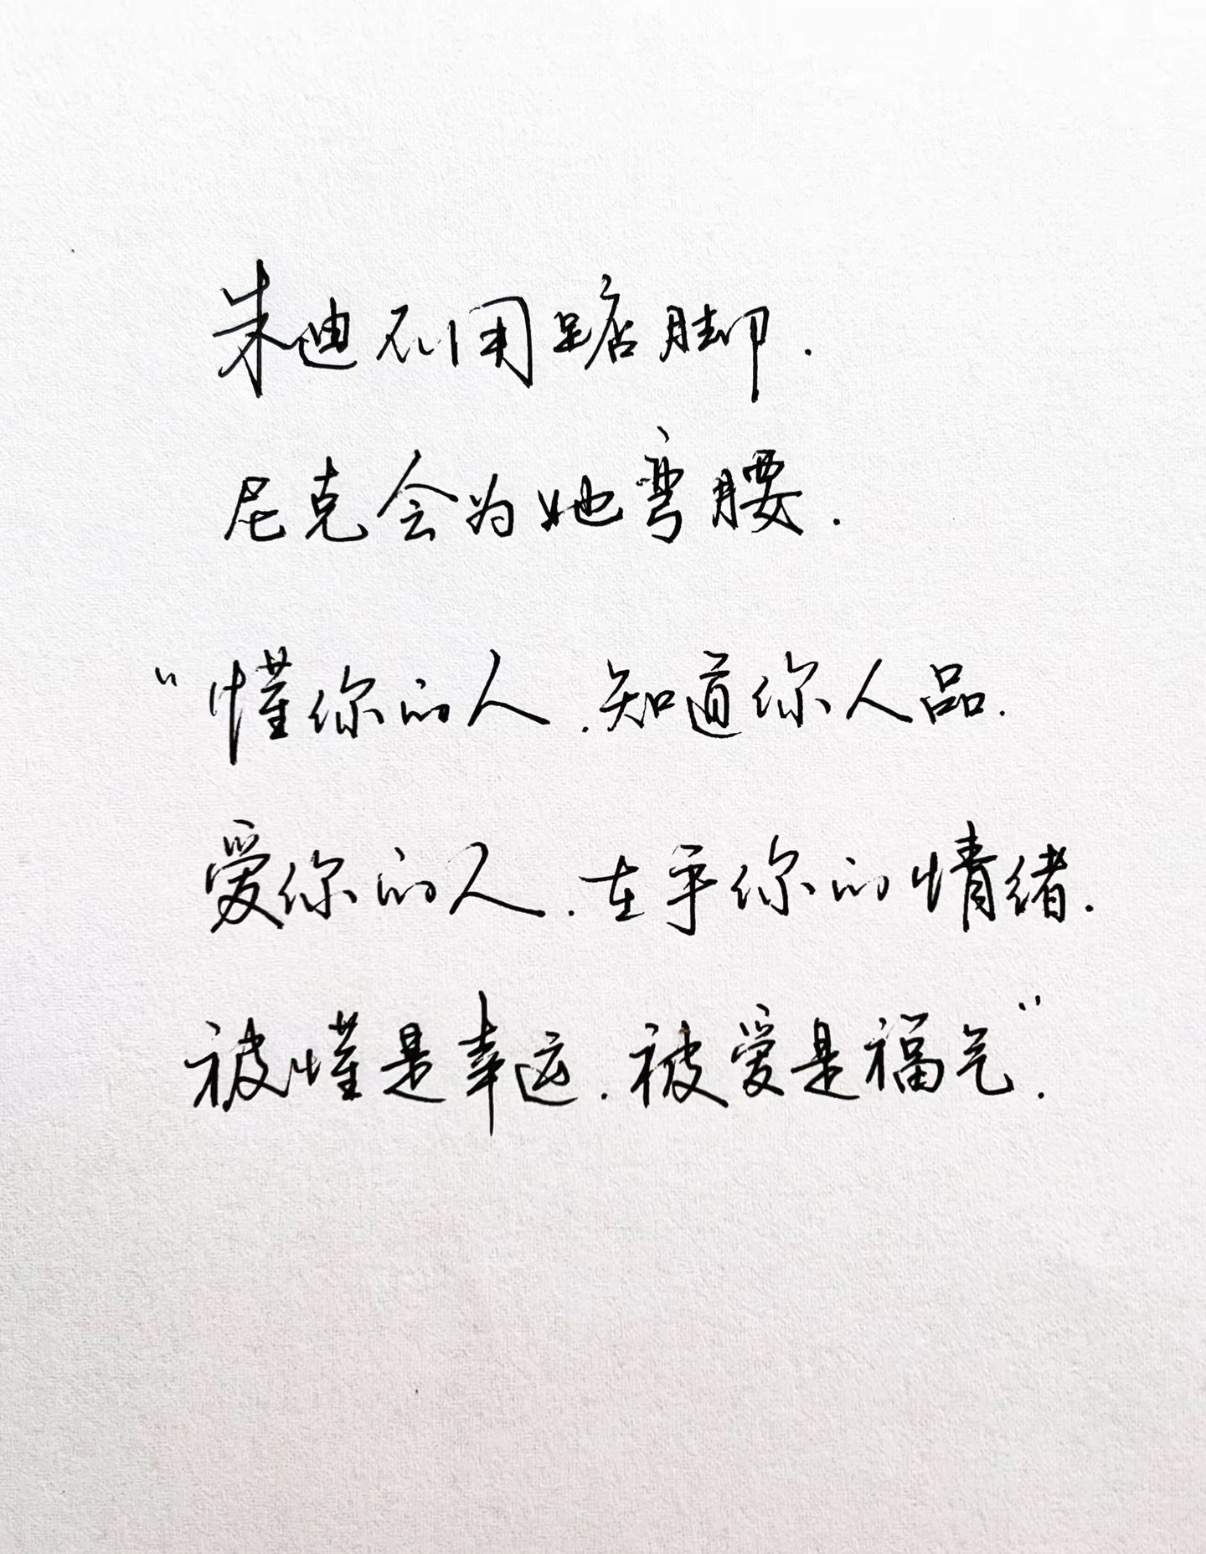 朱迪不用踮脚.
尼克会为她弯腰.
"懂你的人.知道你人品.
爱你的人.在乎你的情绪.
被懂是幸运.被爱是福气".